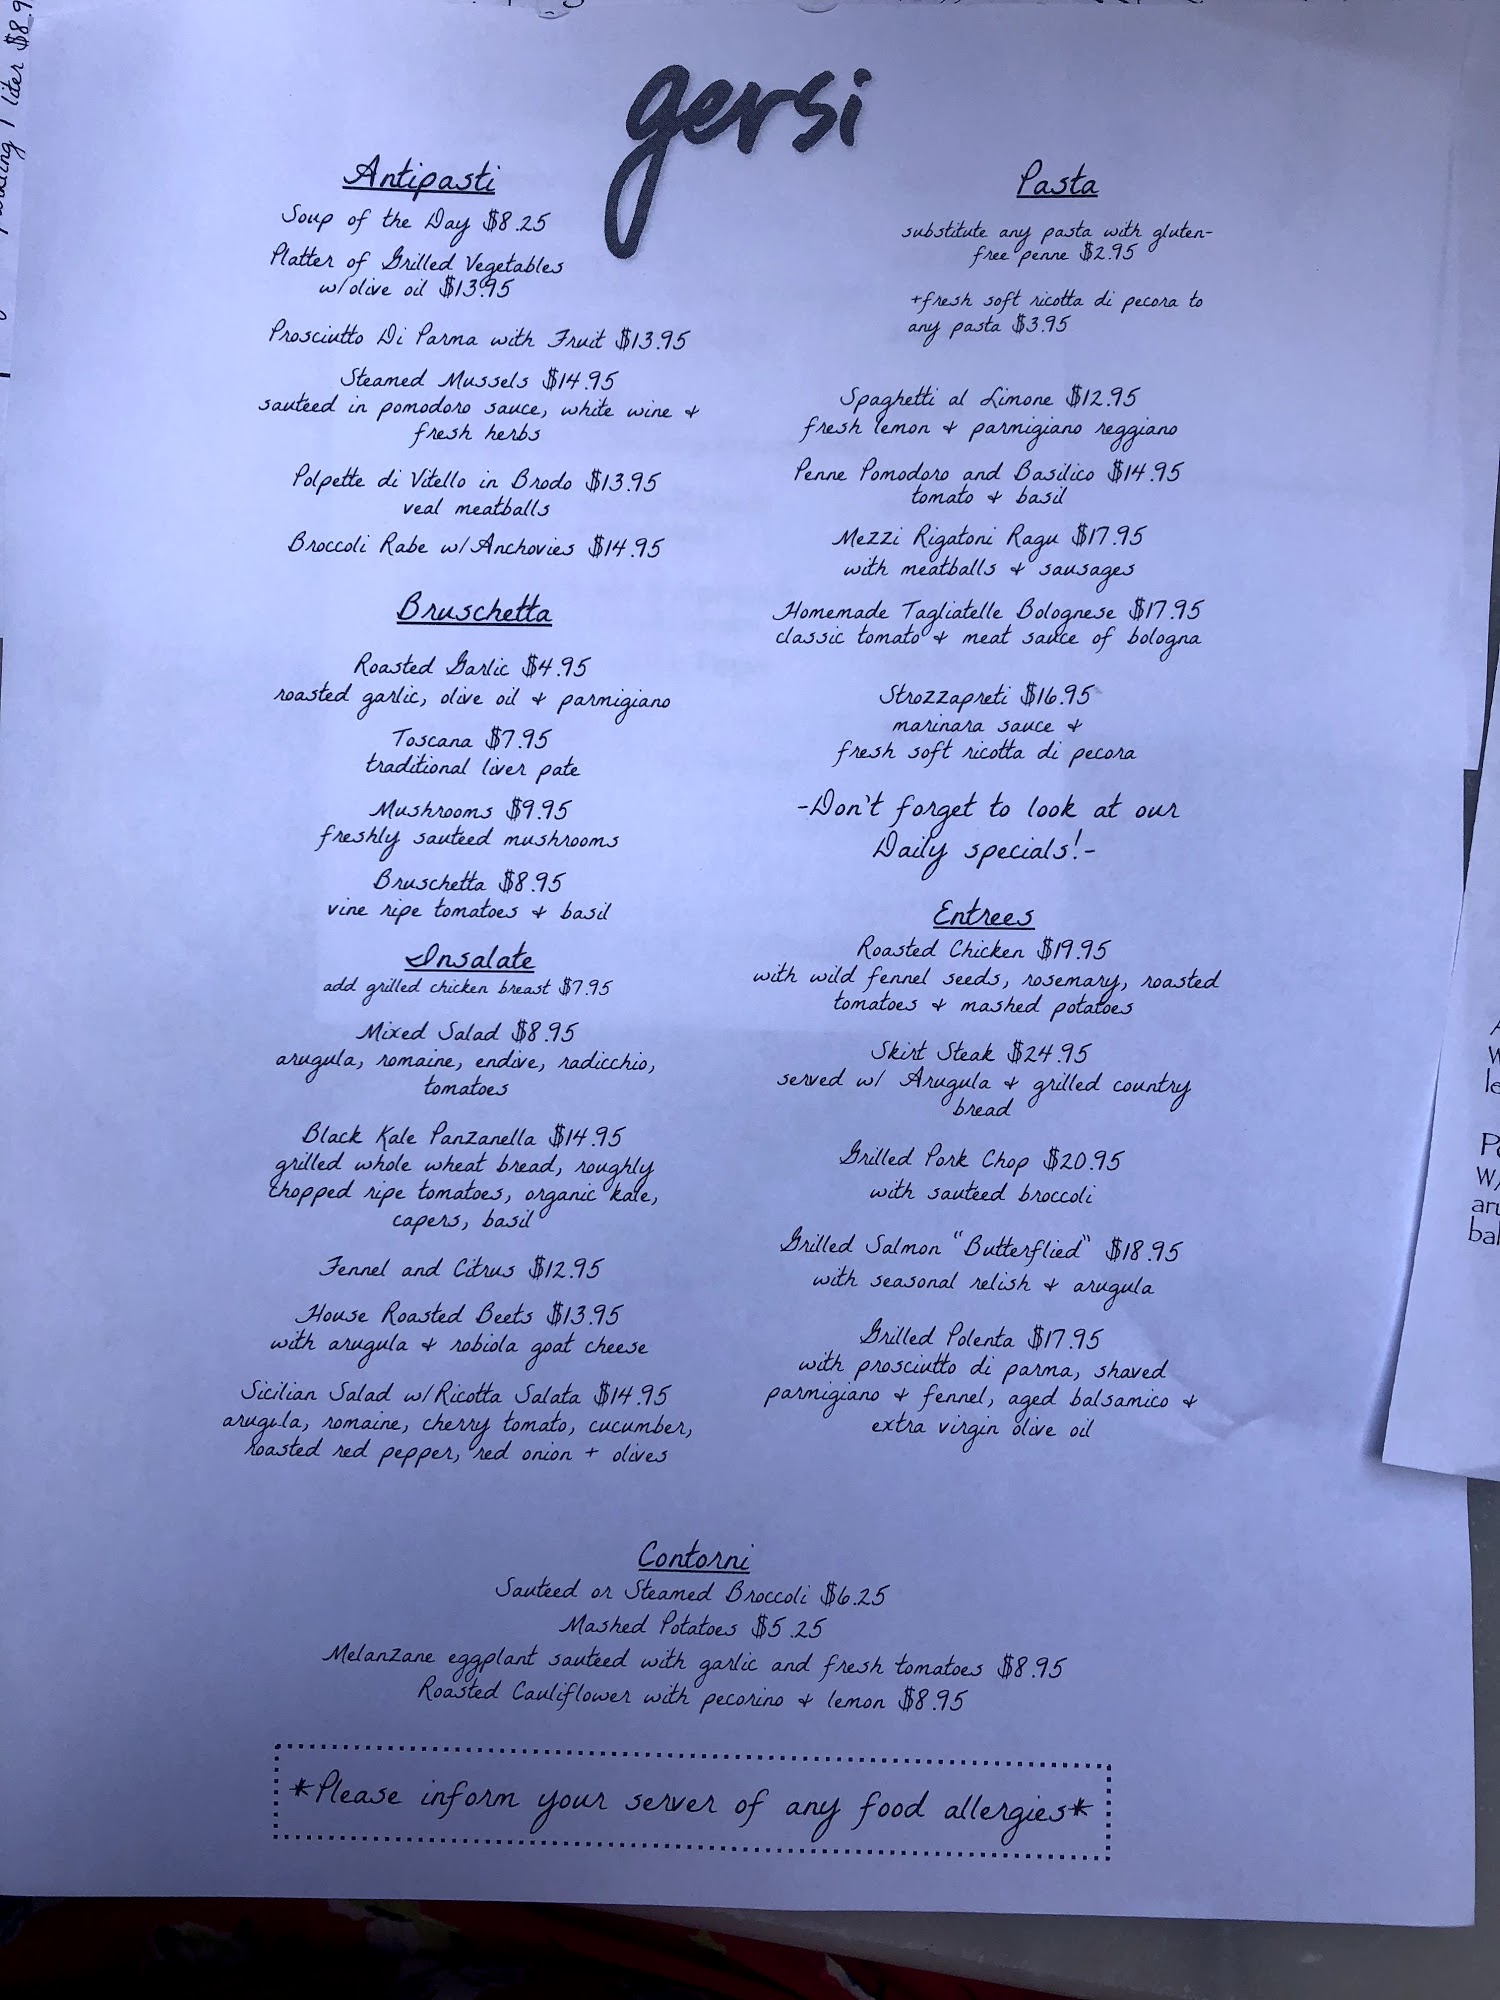 gersi
Antipasti
Soup of the Day $8.25
Platter of Grilled Vegetables
w/olive oil $13.95
Prosciutto Di Parma with Fruit $13.95
Steamed Mussels $14.95
sauteed in pomodoro sauce, white wine &
fresh herbs
Polpette di Vitello in Brodo $13.95
veal meatballs
Broccoli Rabe w/Anchovies $14.95
Bruschetta
Roasted Garlic $4.95
roasted garlic, olive oil & parmigiano
Toscana $7.95
traditional liver pate
Mushrooms $9.95
freshly sauteed mushrooms
Bruschetta $8.95
vine ripe tomatoes & basil
Insalate
add grilled chicken breast $7.95
Mixed Salad $8.95
arugula, romaine, endive, radicchio,
tomatoes
Black Kale Panzanella $14.95
grilled whole wheat bread, roughly
chopped ripe tomatoes, organic kale,
capers, basil
Fennel and Citrus $12.95
House Roasted Beets $13.95
with arugula & robiola goat cheese
Sicilian Salad w/Ricotta Salata $14.95
arugula, romaine, cherry tomato, cucumber,
roasted red pepper, red onion + olives
Pasta
substitute any pasta with gluten-
free penne $2.95
+fresh soft ricotta di pecora to
any pasta $3.95
Spaghetti al Limone $12.95
fresh lemon & parmigiano reggiano
Penne Pomodoro and Basilico $14.95
tomato & basil
Mezzi Rigatoni Ragu $17.95
with meatballs & sausages
Homemade Tagliatelle Bolognese $17.95
classic tomato & meat sauce of bologna
Strozzapreti $16.95
marinara sauce &
fresh soft ricotta di pecora
-Don't forget to look at our
Daily specials!-
Entrees
Roasted Chicken $19.95
with wild fennel seeds, rosemary, roasted
tomatoes & mashed potatoes
Skirt Steak $24.95
served w/ Arugula & grilled country
bread
Grilled Pork Chop $20.95
with sauteed broccoli
Grilled Salmon "Butterflied" $18.95
with seasonal relish & arugula
Grilled Polenta $17.95
with prosciutto di parma, shaved
parmigiano & fennel, aged balsamico &
extra virgin olive oil
Contorni
Sauteed or Steamed Broccoli $6.25
Mashed Potatoes $5.25
Melanzane eggplant sauteed with garlic and fresh tomatoes $8.95
Roasted Cauliflower with pecorino & lemon $8.95
*Please inform your server of any food allergies*
1 liter